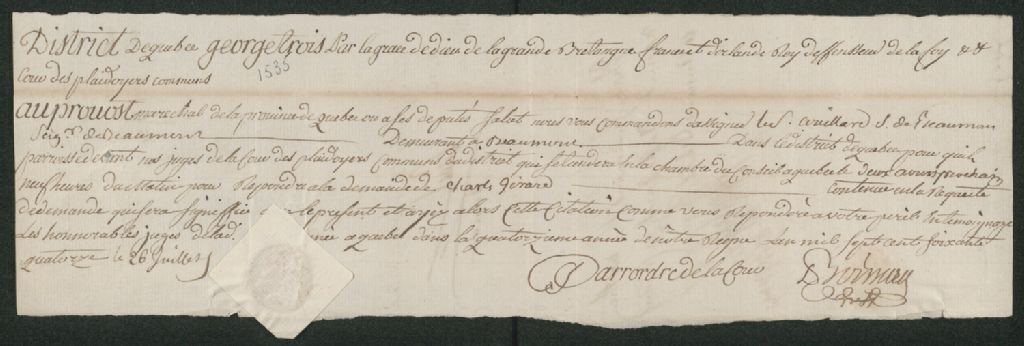 District de quebec george trois Par la grace de dieu de la grande Bretongne france et dirlande Roy deffensseur de la foy &c &c
1535
Cour des plaidoyers communs
au prouost marechal de la province de quebec ou a ses deputés Salut nous vous commandons dassigner le Sr. Couillard S. de Beaumon
Seigr. de Beaumont Demurant a Beaumont Dans le district de quebec pour quil
paroisse devant nos juges de la Cour des plaidoyers Communs du district qui se tiendra de la chambre du Conseil a quebec le Deux avous prochain
neuf heures du Matin pour Repondre a la demande de Charls Girard Contenue en la Requete
de demande qui sera signiffié le present et ayez alors cette Citation comme vous Repondrez a votre peril En temoignage
Les honnorables juges de lad. a quebec dans la quatorzieme année de nôtre Regne Lan mil sept cent soixante
quatorze le 26 Juillet
Par ordre de la Cour